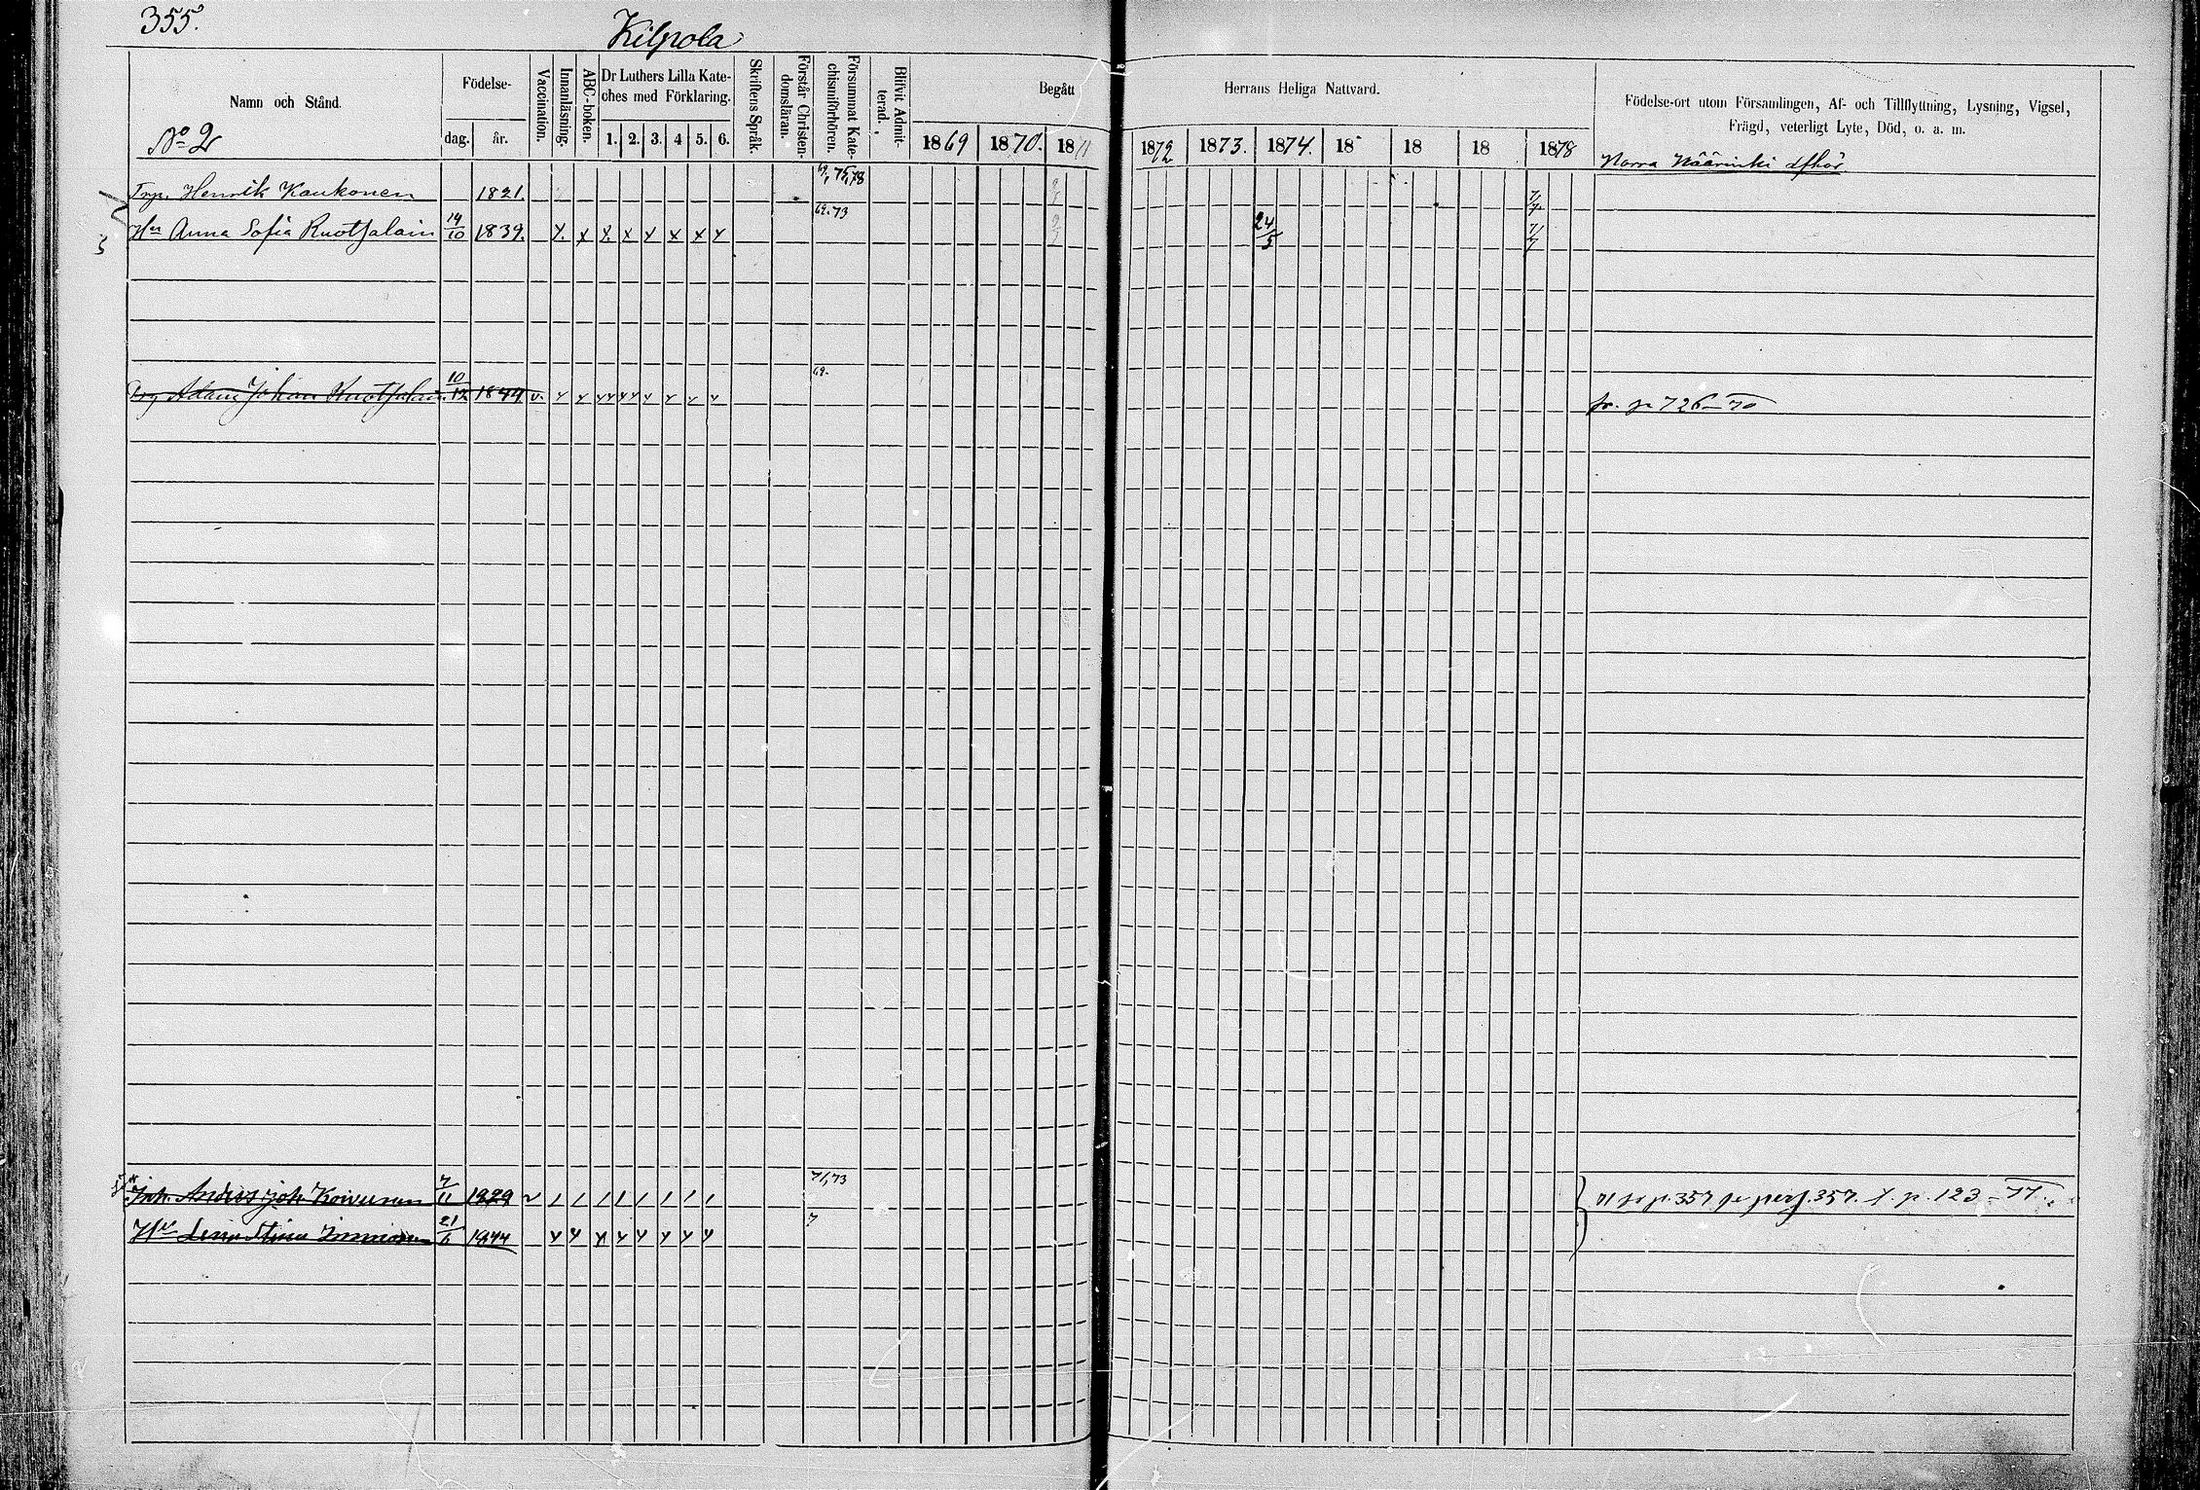 355.
Kilpola
Namn och Stånd.
No 2
Födelse-
dag. år.
Vaccination.
Innanläsning.
ABC-boken.
Dr Luthers Lilla Kate-
ches med Förklaring.
1. 2. 3. 4 5. 6.
Skriftens Språk.
Förstår Christen-
domsläran.
Försummat Kate-
chismiförhören.
Blifvit Admit-
terad.
Begått Herrans Heliga Nattvard.
1869 1870. 1871 1872 1873. 1874. 18 18 18 1878
Födelse-ort utom Församlingen, Af- och Tillflyttning, Lysning, Vigsel,
Frägd, veterligt Lyte, Död, o. a. m.
Norra
Henrik Kaukonen 1821. 75, 78 7/7
Hu Anna Sofia Ruotsalain 14/10 1839. x x x x x x x x 69. 73 24/5 7/7
5
Adam Johan Ruotsalain 10/12 1844 v. x x x x x x x x 69. p 726 – 70
Inh. Anders Joh. Koivunen 7/11 1829 v / / / / / / / / 71, 73 p. 357. 357. p. 123 – 77.
Hu Lisa Stina 21/6 1844 x x x x x x x x 7